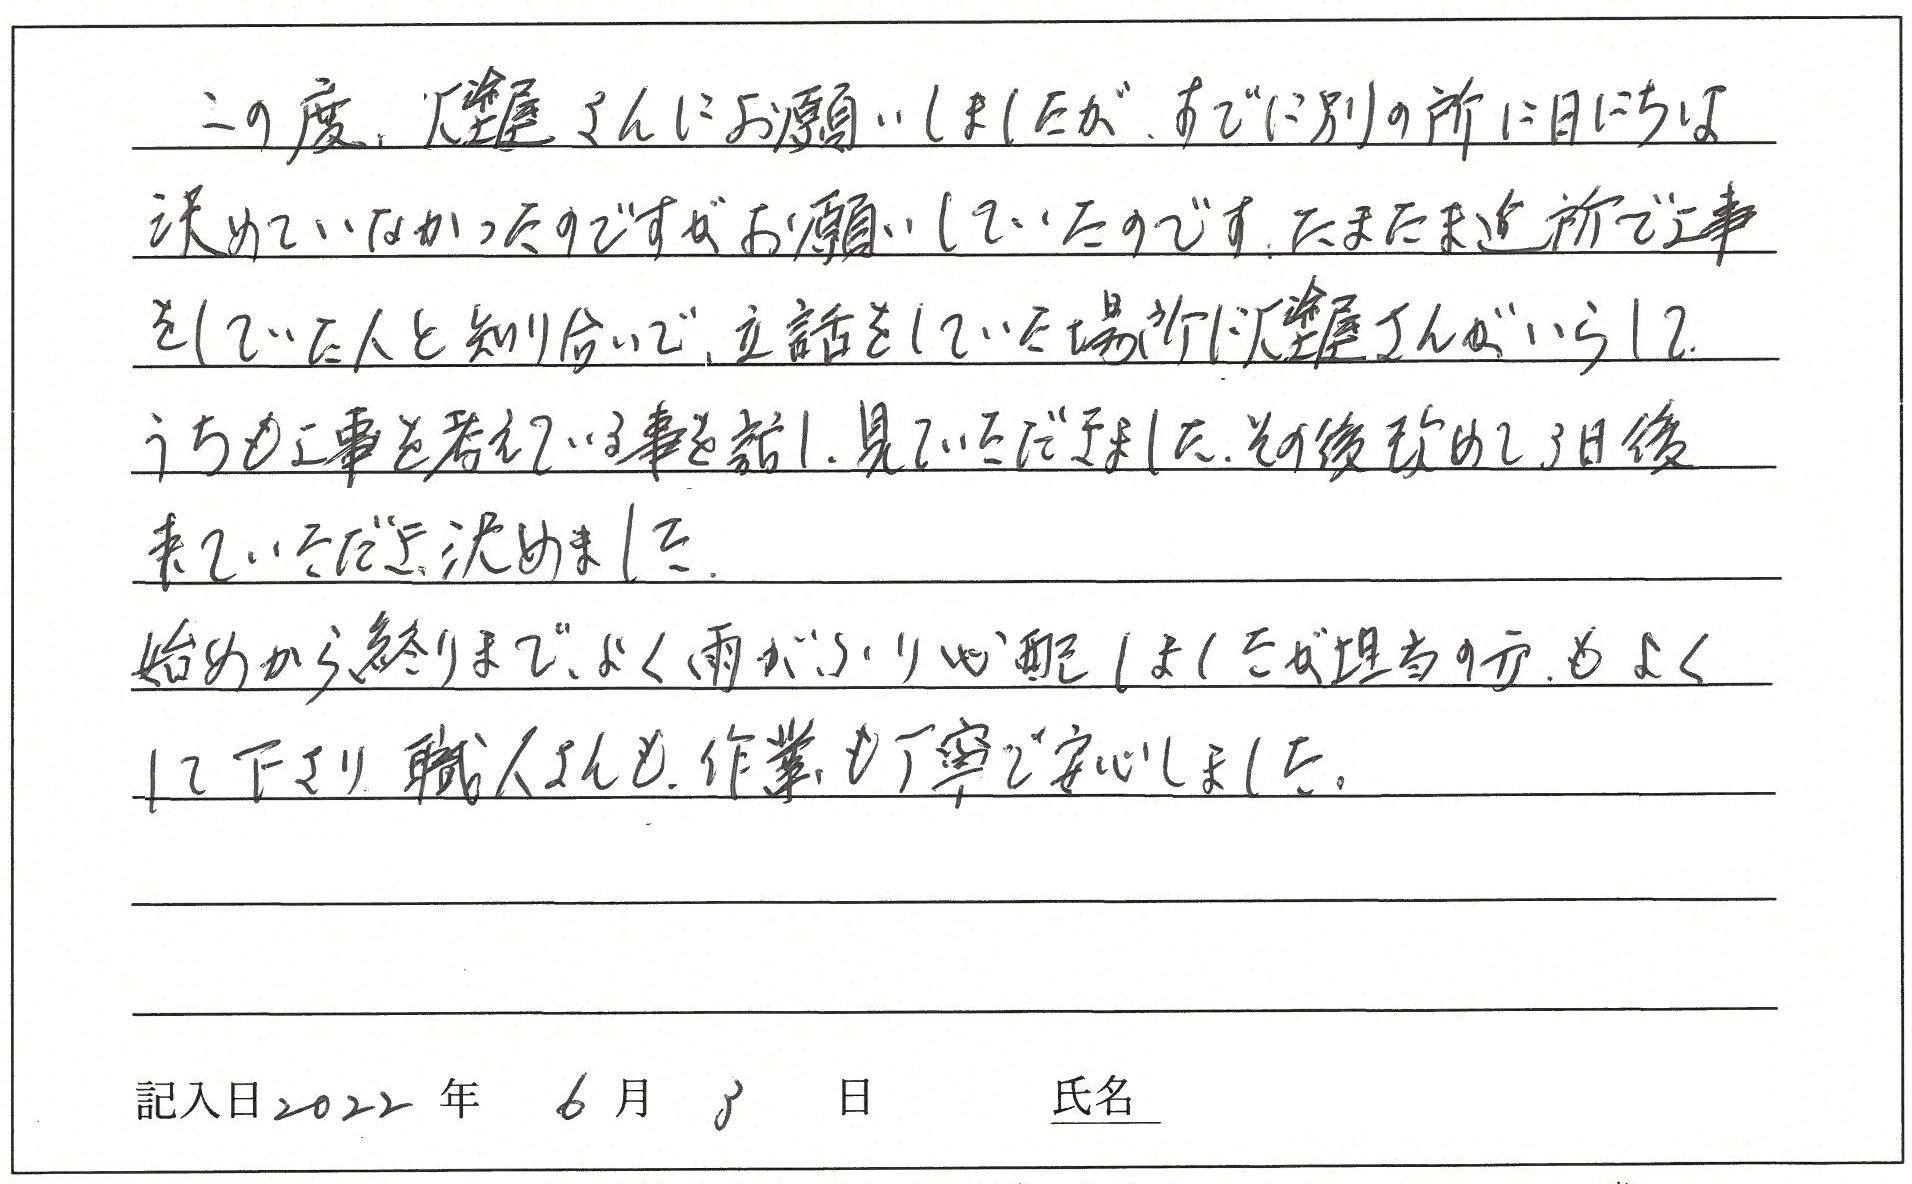 この度、仁塗屋さんにお願いしましたが、すでに別の所に日にちは
決めていなかったのですがお願いしていたのです。たまたま近所で工事
をしていた人と知り合いで、立話をしていた場所に仁塗屋さんがいらして、
うちも工事を考えている事を話し、見ていただきました。その後改めて3日後
来ていただき、決めました。
始めから終りまで、よく雨がふり心配しましたが担当の方、もよく
して下さり職人さんも、作業、も丁寧で安心しました。
記入日 2022 年 6 月 3 日 氏名